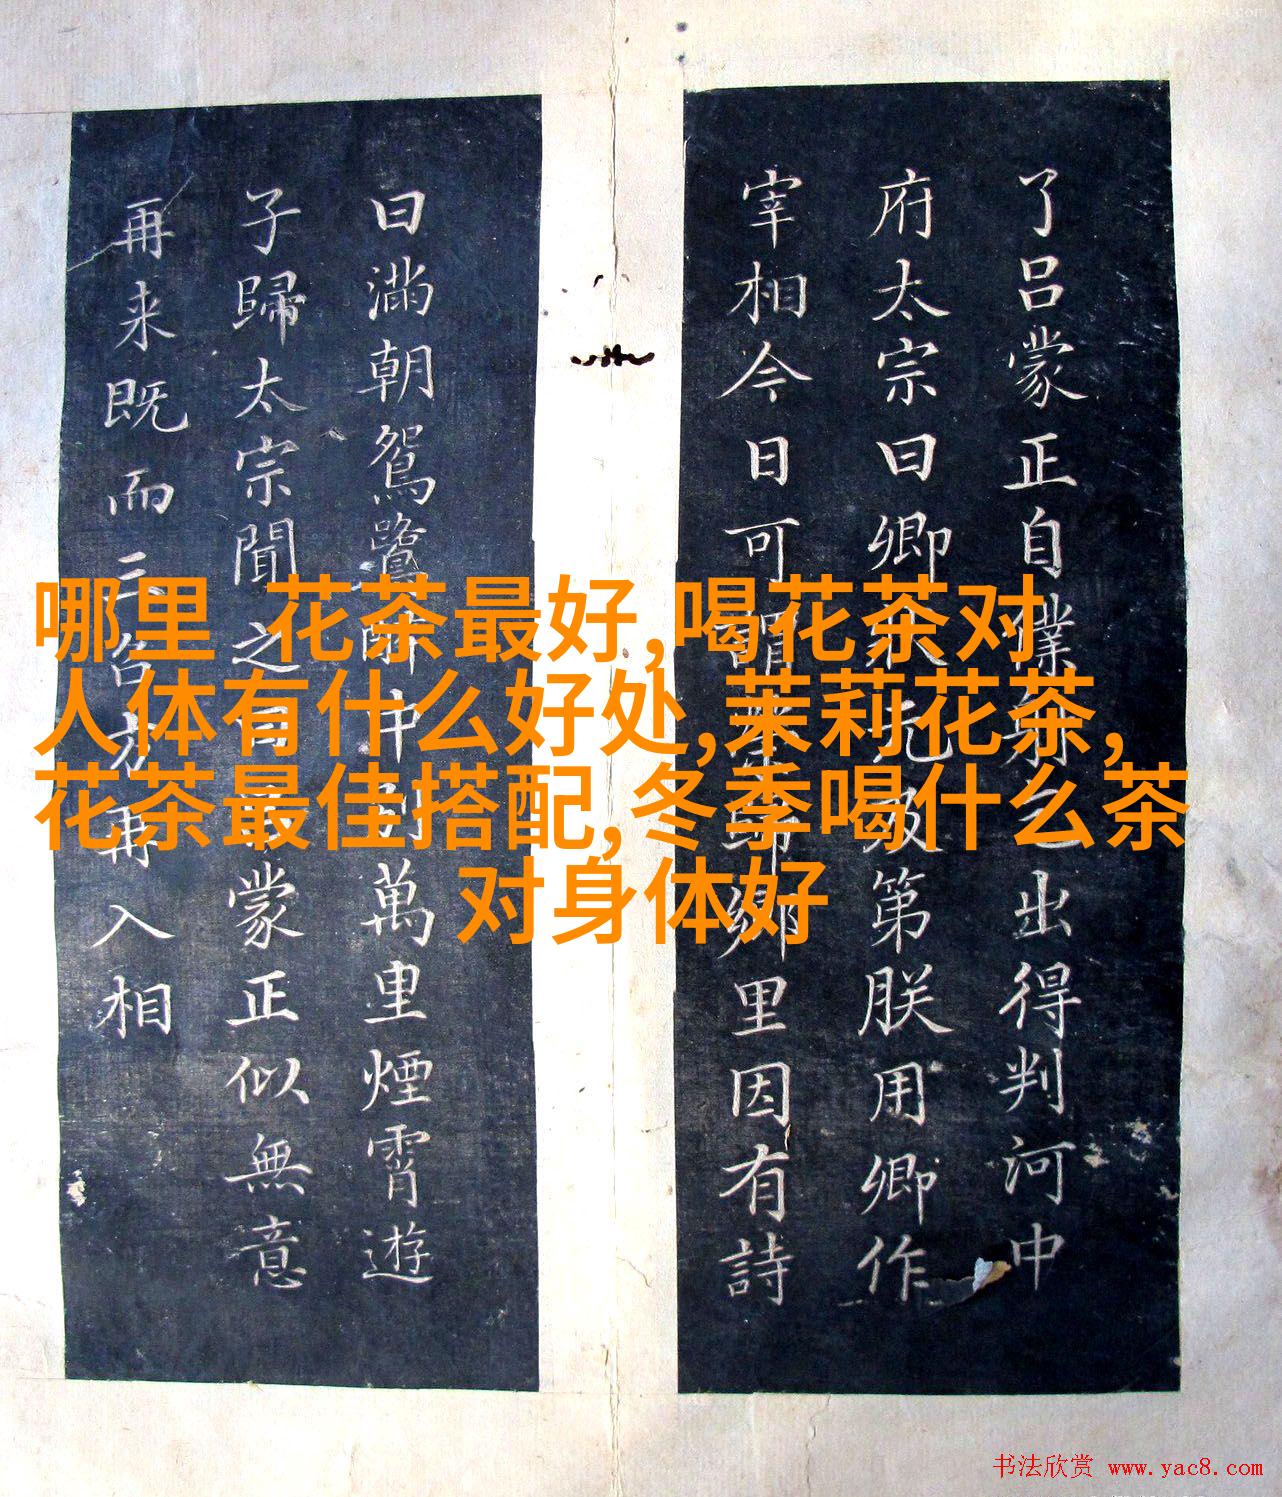 了吕蒙正自僕射出得判河中
府太宗曰卿状元及第朕用卿作
宰相今日可謂歸鄉里因有詩
曰滿朝鴛鷺醉中别萬里煙霄遊
子歸太宗聞之曰蒙正似無意
再来既而方再入相
哪里 花茶最好,喝花茶对
人体有什么好处,茉莉花茶,
花茶最佳搭配,冬季喝什么茶
对身体好
书法欣赏 www.yac8.com